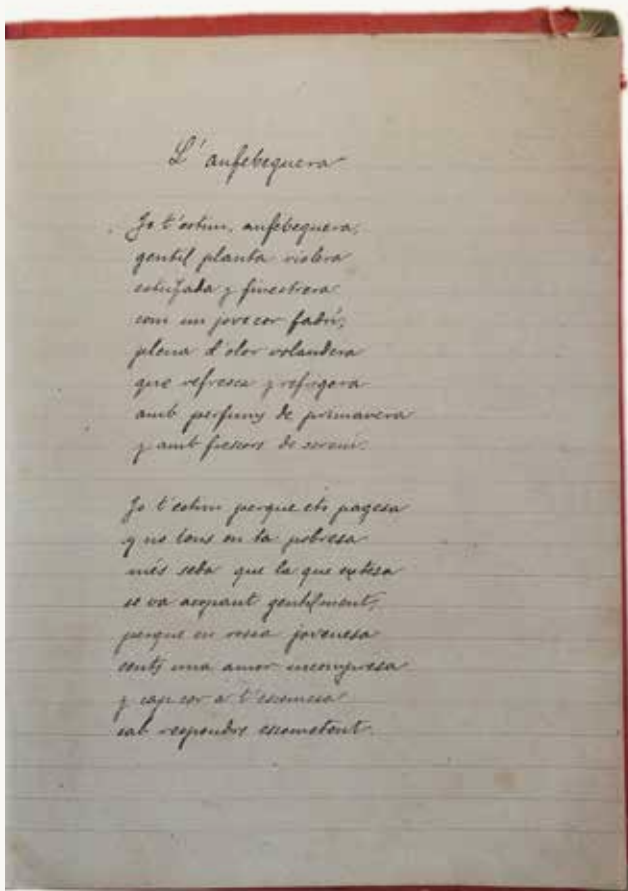 L'aufebeguera
Jo t'estim, aufebeguera,
gentil planta violera
estufada y finestrera
com un jove cor fadrí,
plena d'olor volandera
que refresca y refrigera
amb perfums de primavera
y amb frescors de serení.
Jo t'estim perque ets pagesa
y no tens en ta pobresa
més seba que la que extesa
se va acopant gentilment,
perque en ta jovenesa
sents una amor incompresa
y cap cor a t'escomesa
sab respondre escometent.